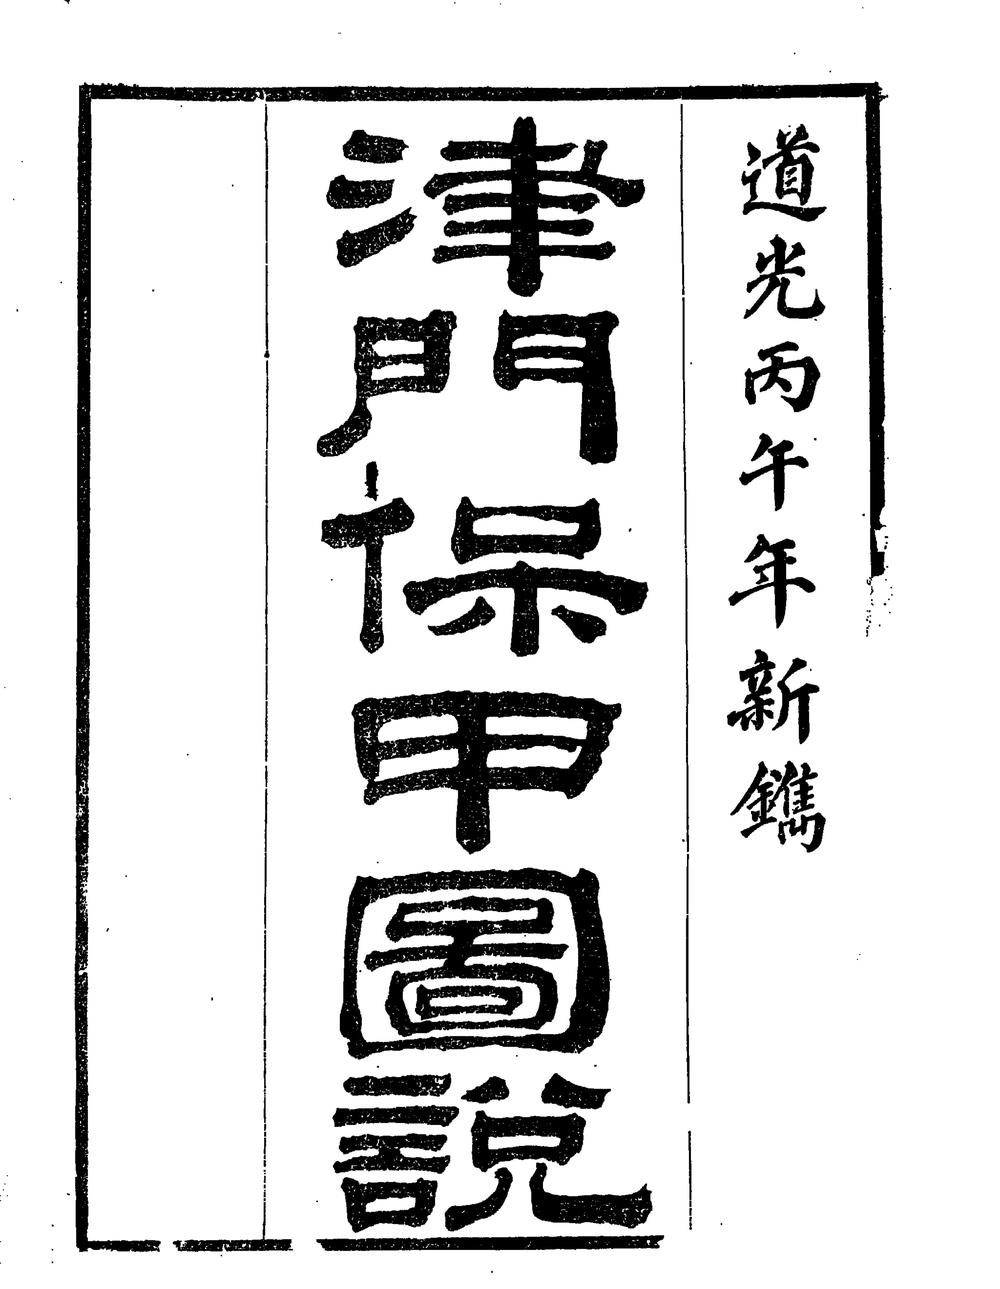 道光丙午年新鐫
津門保甲圖說